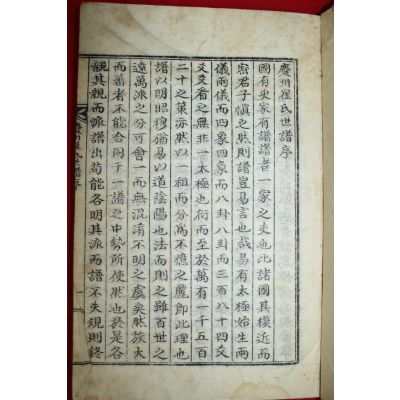 慶州崔氏世譜序
國有史家有譜譜者一家之史也比諸國其模近而
密君子愼之然則譜豈易言也哉易有太極始生兩
儀兩儀而四象四象而八卦八卦而三百八十四爻
爻爻看之無非一太極也衍而至於萬有一千五百
二十之策亦然以一祖而分爲不億之麗卽此理也
譜以明昭穆猶易以道陰陽也法而則之雖百世之
遠萬派之分可會一而無混淆不明之虞矣然族大
而蕃者不能合同于一譜之中勢所使然也於是各
親其親而派譜出苟能各明其派而譜不失規則終